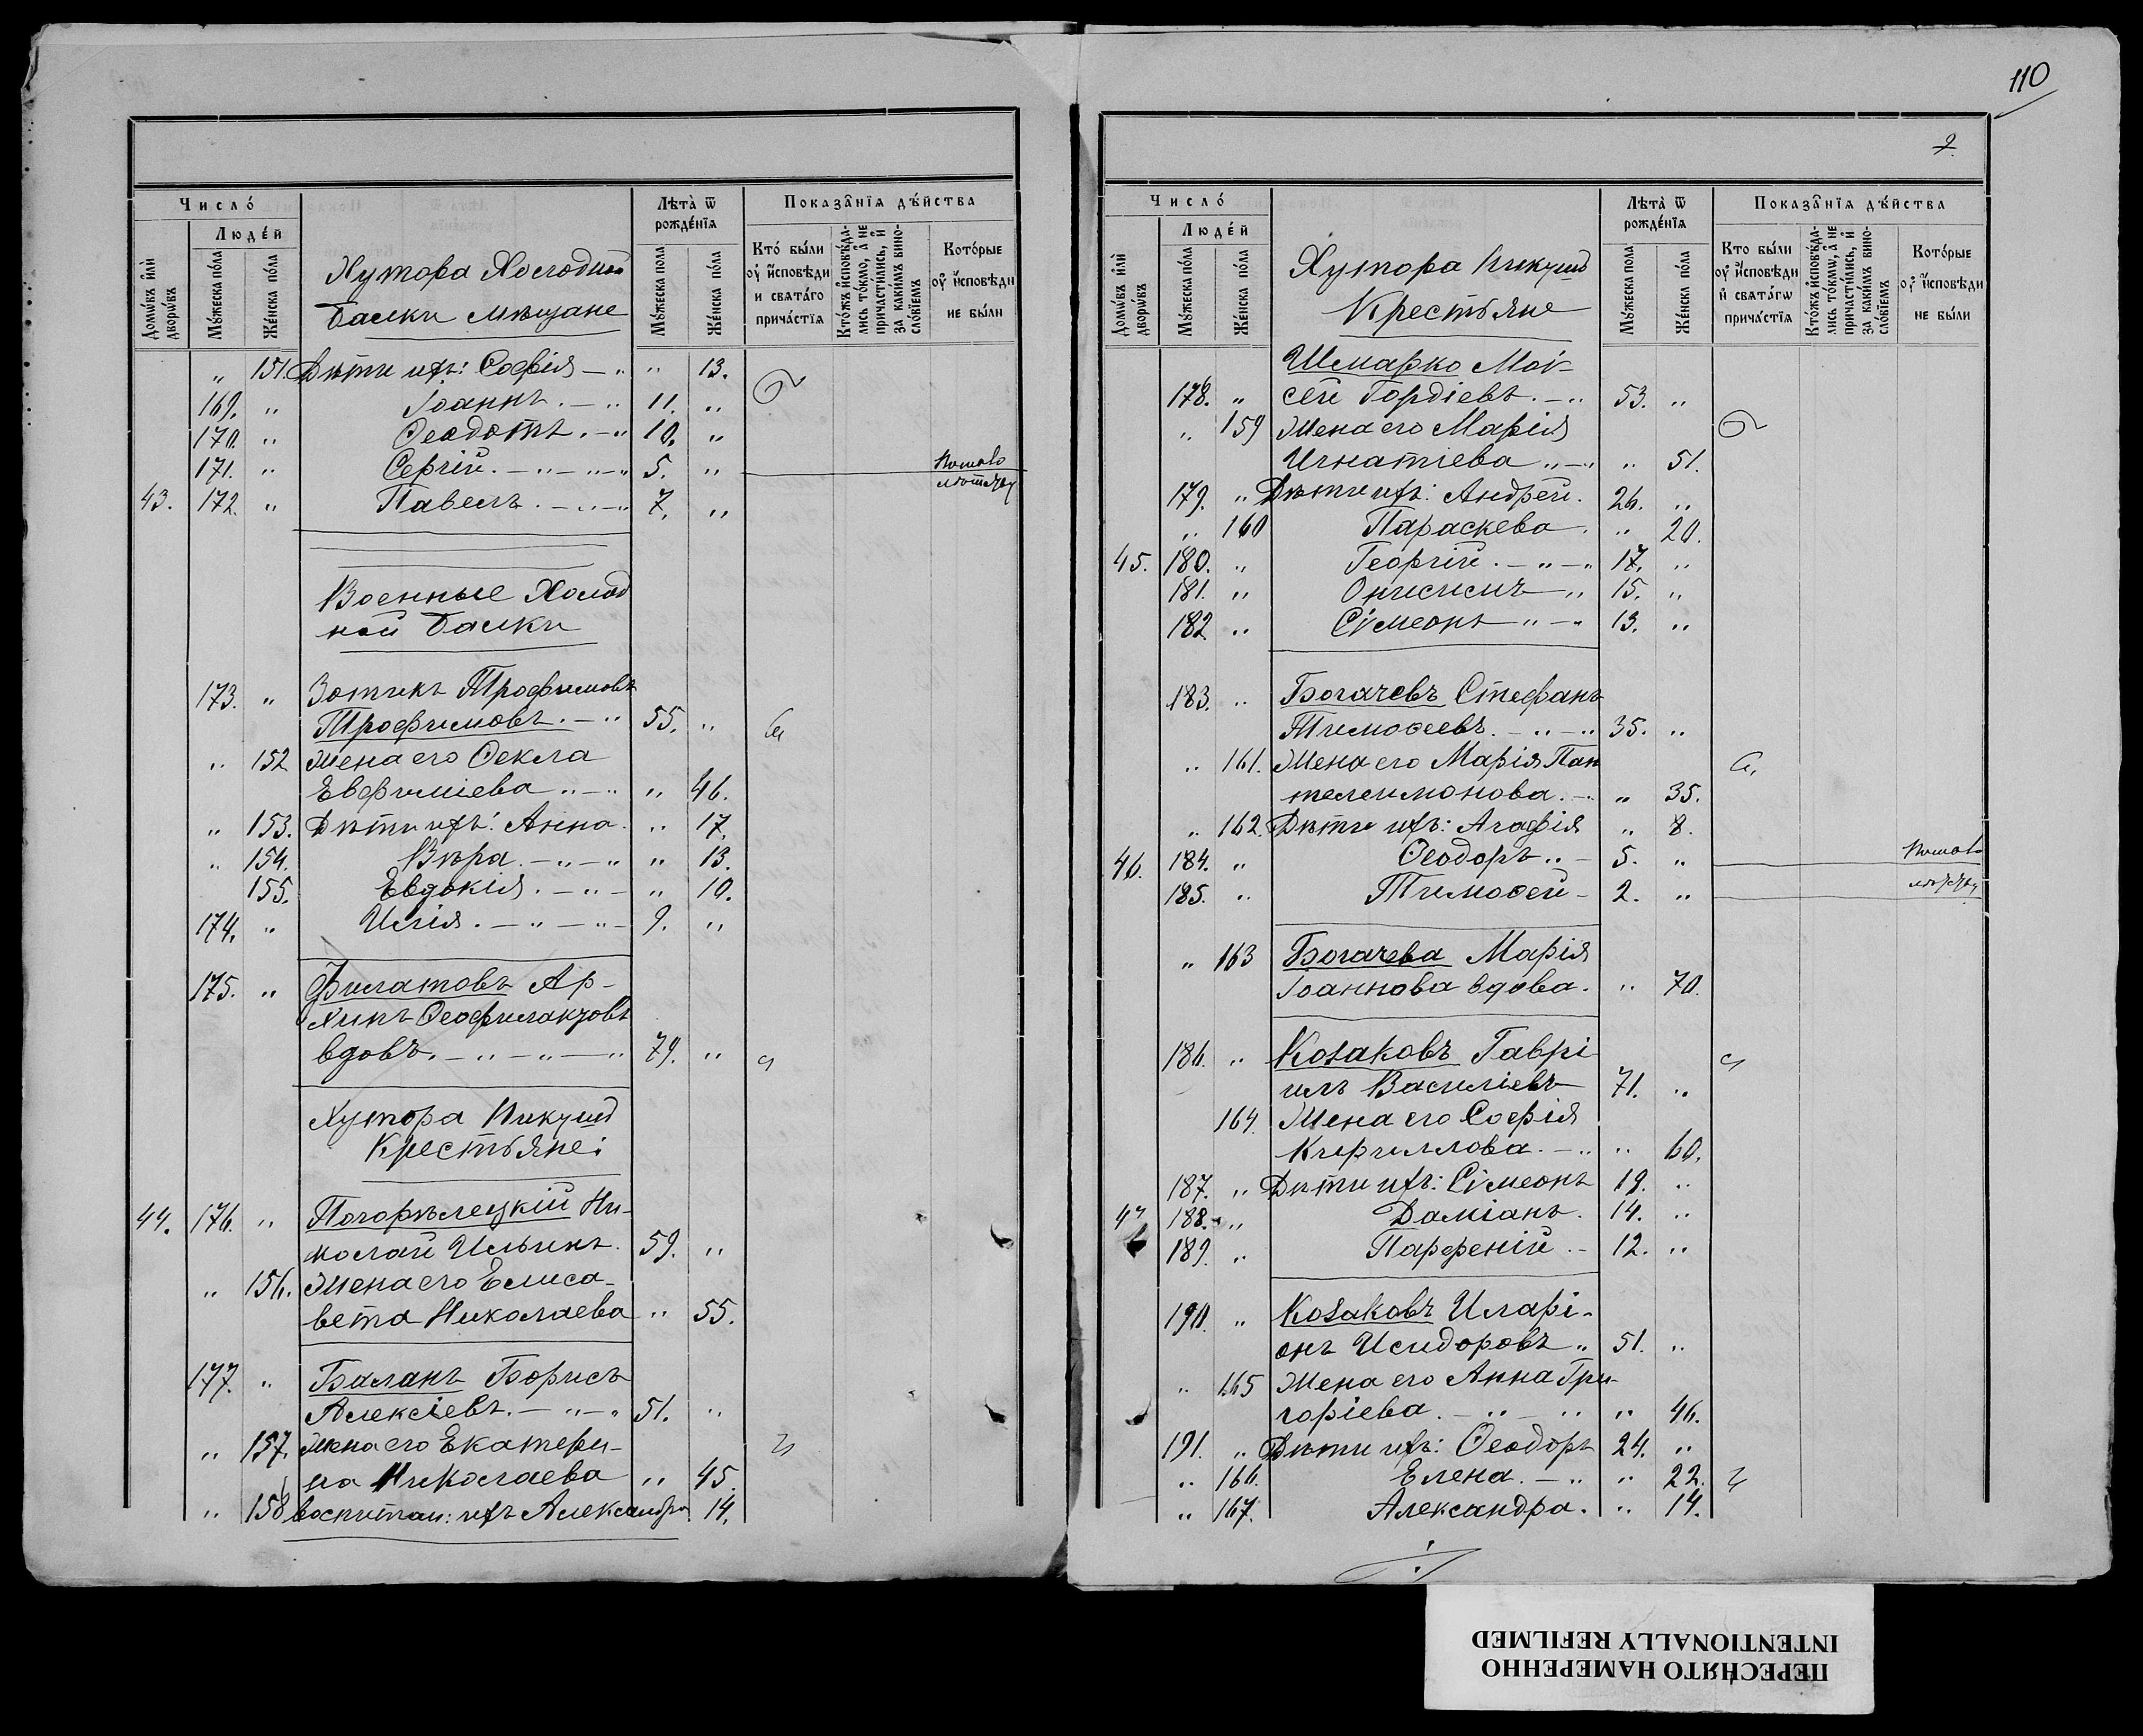 110
Число́
Люде́й
Домѡ́въ и҆лѝ дворѡ́въ
Мꙋ́жеска по́ла
Же́нска по́ла
Хутора Холодной
Балки мѣщане
Лѣта̀ ѿ рожде́нїѧ
Мꙋ́жеска пола
Же́нска по́ла
Показа̑нїѧ дѣ́йства
Кто́ бы́ли оу҆ и҆́сповѣди и свѧта́го прича́стїѧ
Кто́жъ и҆сповѣ́да-
лись то́кмо, а҆ не
причасти́лись, и҆
за каки́мъ вино-
сло́вїемъ
Кото́рые оу҆ и҆́сповѣди не бы́ли
„ 151. Дѣти ихъ: Софія — „ „ 13.
169. „ Іоаннъ. — „ 11. „
170. „ Ѳеодотъ. — „ 10. „
171. „ Сергій. — „ — „ — „ 5. „
43. 172. „ Павелъ. — „ — „ 7. „
Военные Холод
ной Балки
173. „ Зотикъ Трофимовъ
Трофимовъ. — „ 55. „
„ 152 Жена его Ѳекла
Евфиміева „ — „ „ 46.
„ 153. Дѣти ихъ: Анна. „ 17.
„ 154. Вѣра. — „ — „ „ 13.
155. Евдокія. — „ — „ 10.
174. „ Илія. — „ — „ — 9. „
175. „ Филатовъ Ар-
хипъ Ѳеофилактовъ
вдовъ. — „ — „ — „ 79. „
Хутора Никуш
Крестьяне:
44. 176. „ Погорѣлецкій Ни-
колай Ильинъ. 59. „
„ 156. Жена его Елиса-
вета Николаева „ 55.
177. „ Баланъ Борисъ
Алексіевъ. — „ — „ 51. „
„ 157. Жена его Екатери-
на Николаева „ 45.
„ 158 воспитан: ихъ Александра 14.
Число́
Люде́й
Домѡ́въ и҆лѝ дворѡ́въ
Мꙋ́жеска по́ла
Же́нска по́ла
Хутора Никуш
Крестьяне
Лѣта̀ ѿ рожде́нїѧ
Мꙋ́жеска пола
Же́нска по́ла
Показа̑нїѧ дѣ́йства
Кто бы́ли оу҆ и҆́сповѣди и҆ свѧта́гѡ прича́стїѧ
Кто́жъ и҆сповѣ́да-
лись то́кмѡ, а҆ не
причасти́лись, и҆
за каки́мъ вино-
сло́вїемъ
Кото́рые оу҆ и҆́сповѣди не бы́ли
Шмарко Мої-
178. „ сей Гордіевъ. — „ 53. „
„ 159 Жена его Марія
Игнатіева „ — „ „ 51.
179. „ Дѣти ихъ: Андрей. 26. „
„ 160 Параскева. „ 20.
45. 180. „ Георгій. — „ — „ 17. „
181. „ Онисимъ — „ 15. „
182 „ Сімеонъ „ — „ 13. „
183. „ Богачевъ Стефанъ
Тимоѳеевъ. — „ — „ 35. „
„ 161. Жена его Марія Пан
телеимонова. — „ 35.
„ 162. Дѣти ихъ: Агафія „ 8.
46. 184. „ Ѳеодоръ „ — 5. „
185. „ Тимоѳей — 2. „
„ 163 Богачева Марія
Іоаннова вдова. „ 70.
186. „ Козаковъ Гаврі-
илъ Василіевъ 71. „
164. Жена его Софія
Кириллова. — „ „ 60.
187. „ Дѣти ихъ: Сімеонъ 19. „
47 188. „ Даміанъ. 14. „
189. „ Парфеній. — 12. „
190. „ Козаковъ Иларі-
онъ Исидоровъ „ 51. „
„ 165 Жена его Анна Гри-
горіева. — „ — „ „ 46.
191. „ Дѣти ихъ: Ѳеодоръ 24. „
„ 166. Елена. — „ „ 22.
„ 167. Александра. „ 14.
ПЕРЕСНЯТО НАМЕРЕННО
INTENTIONALLY REFILMED